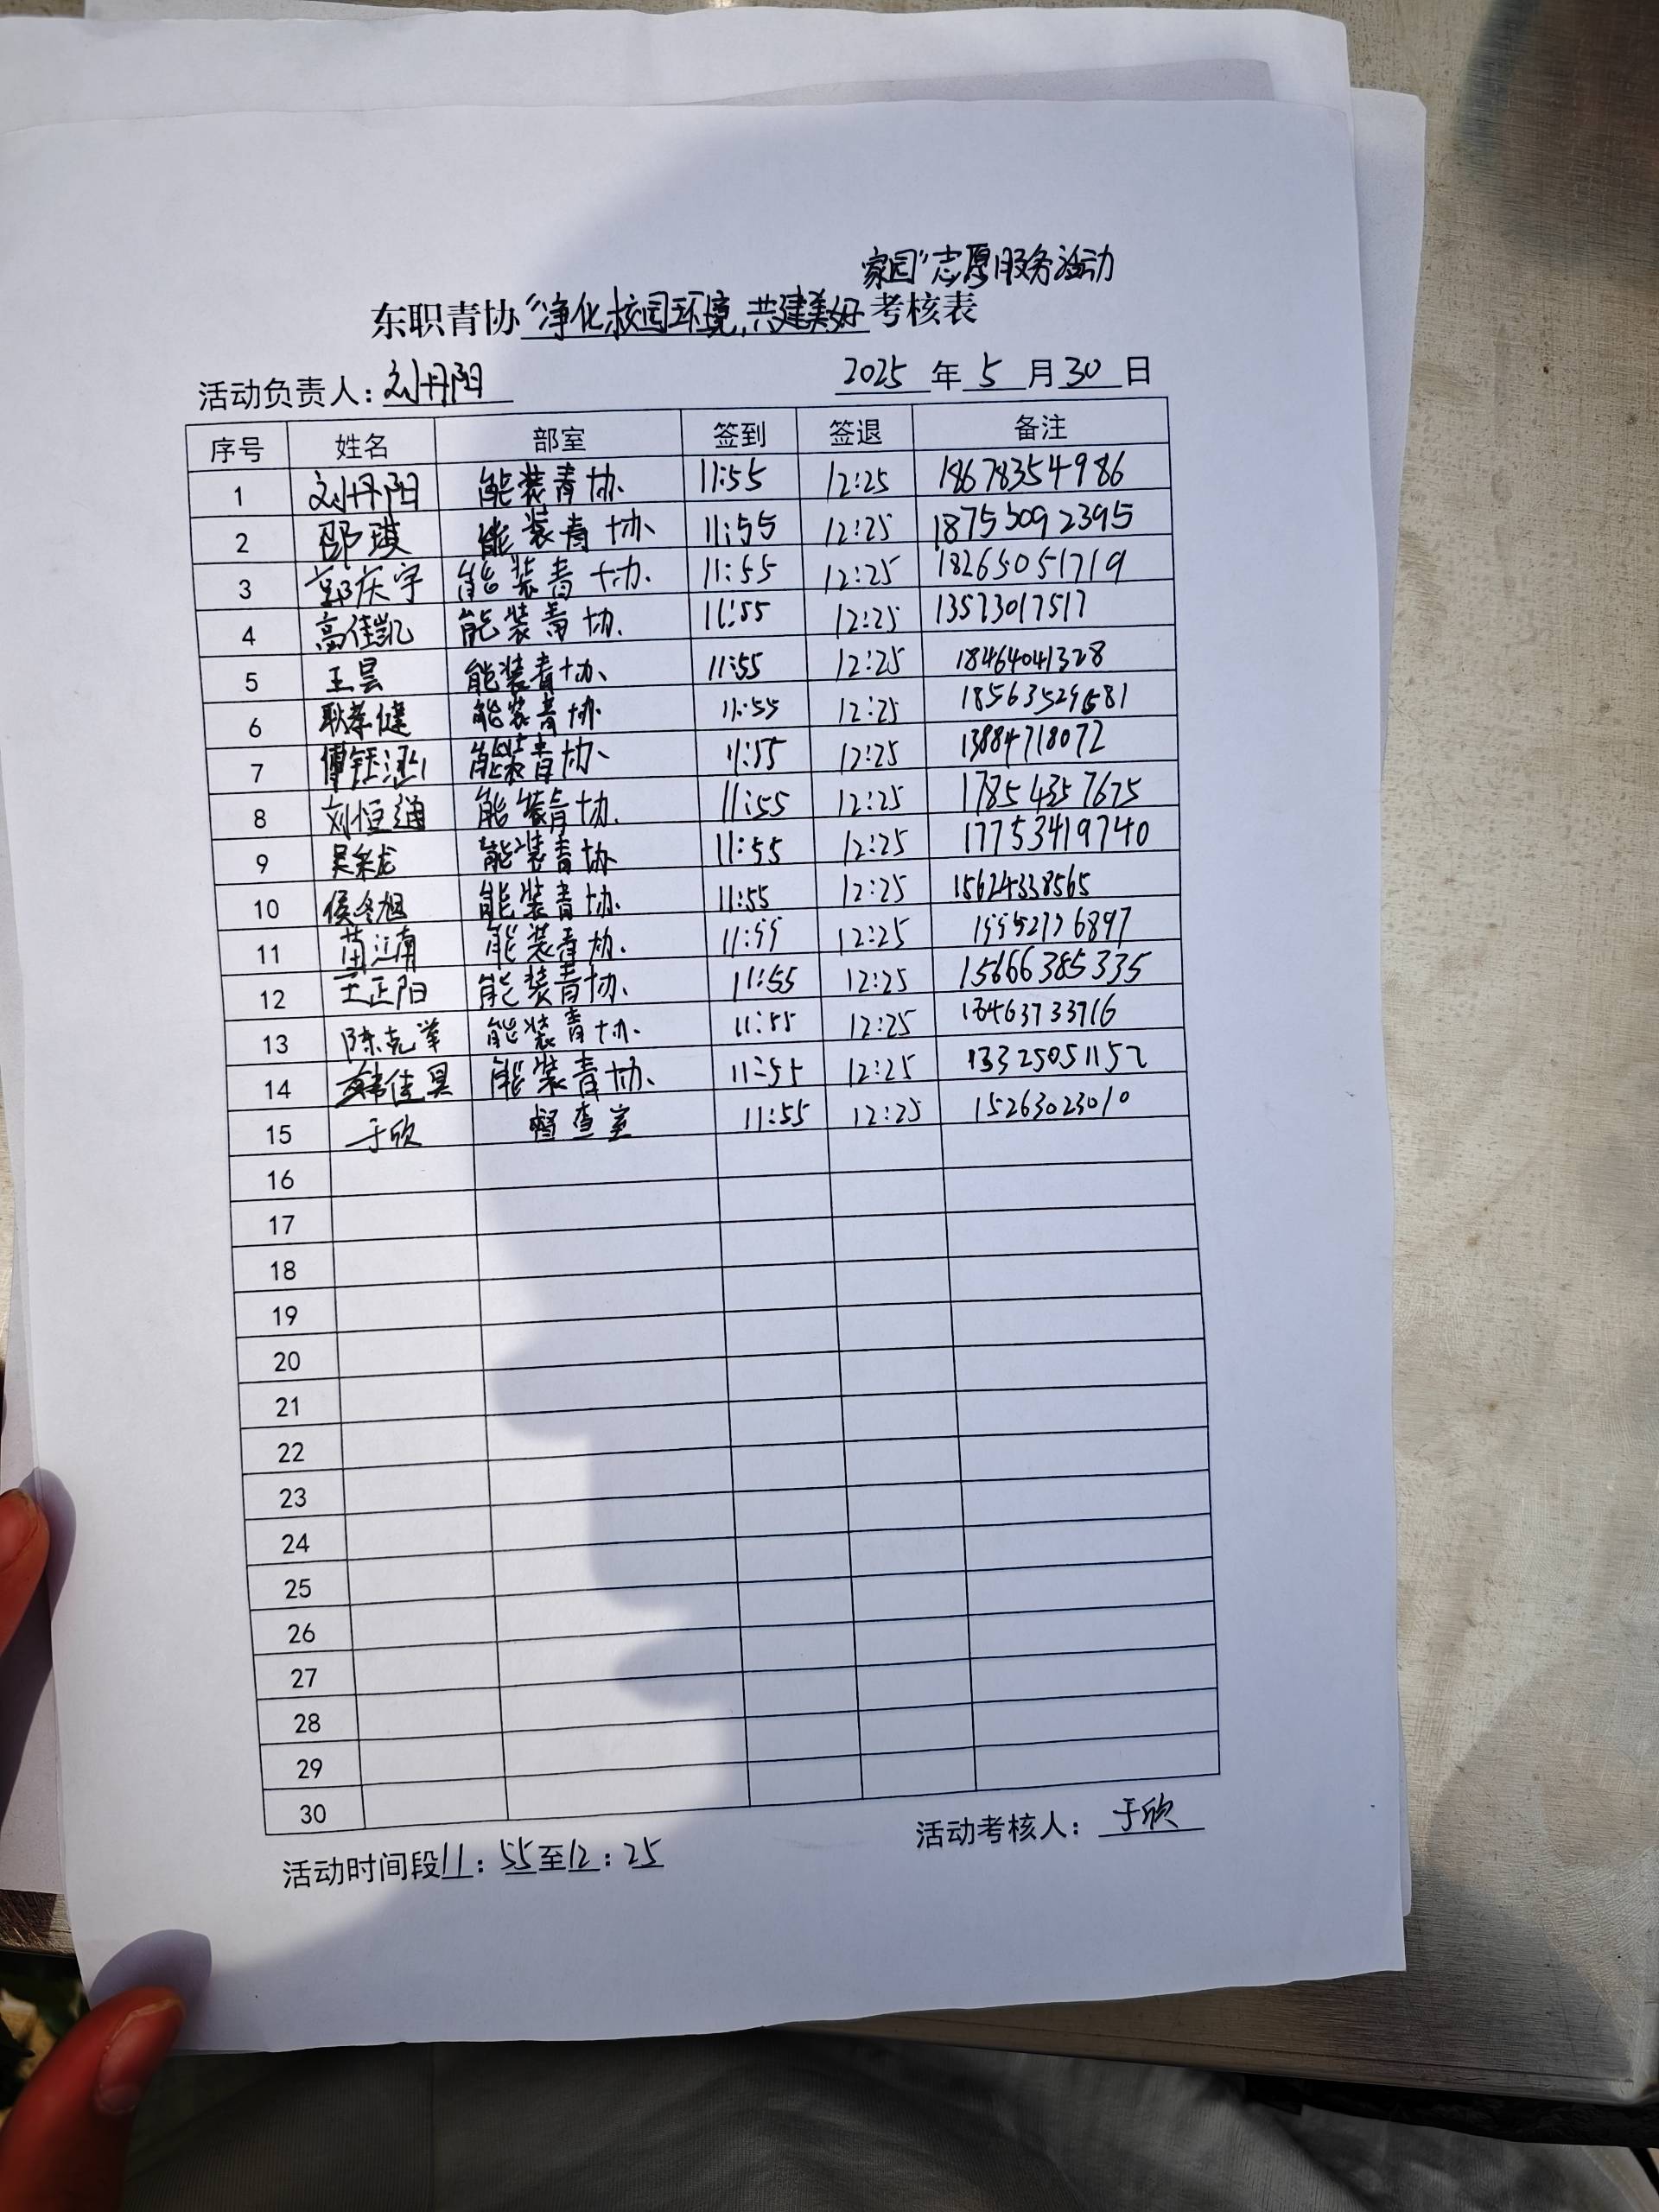 家园”志愿服务活动
东职青协“净化校园环境,共建美好考核表
活动负责人:刘丹阳 2025年5月30日
序号 姓名 部室 签到 签退 备注
1 刘丹阳 能装青协 11:55 12:25 18678354986
2 邵琪 能装青协 11:55 12:25 18753092395
3 郭庆宇 能装青协 11:55 12:25 18265051719
4 高佳凯 能装青协 11:55 12:25 13573017517
5 王昙 能装青协 11:55 12:25 18464041328
6 耿孝健 能装青协 11:55 12:25
7 傅钰涵 能装青协 11:55 12:25 13884718072
8 刘恒通 能装青协 11:55 12:25 17854357675
9 能装青协 11:55 12:25 17753419740
10 侯冬旭 能装青协 11:55 12:25 15624338565
11 苗江南 能装青协 11:55 12:25
12 王正阳 能装青协 11:55 12:25 15666385335
13 陈克举 能装青协 11:55 12:25
14 韩佳昊 能装青协 11:55 12:25 13325051152
15 于欣 督查室 11:55 12:25 15263023010
16
17
18
19
20
21
22
23
24
25
26
27
28
29
30
活动时间段11:55至12:25 活动考核人:于欣